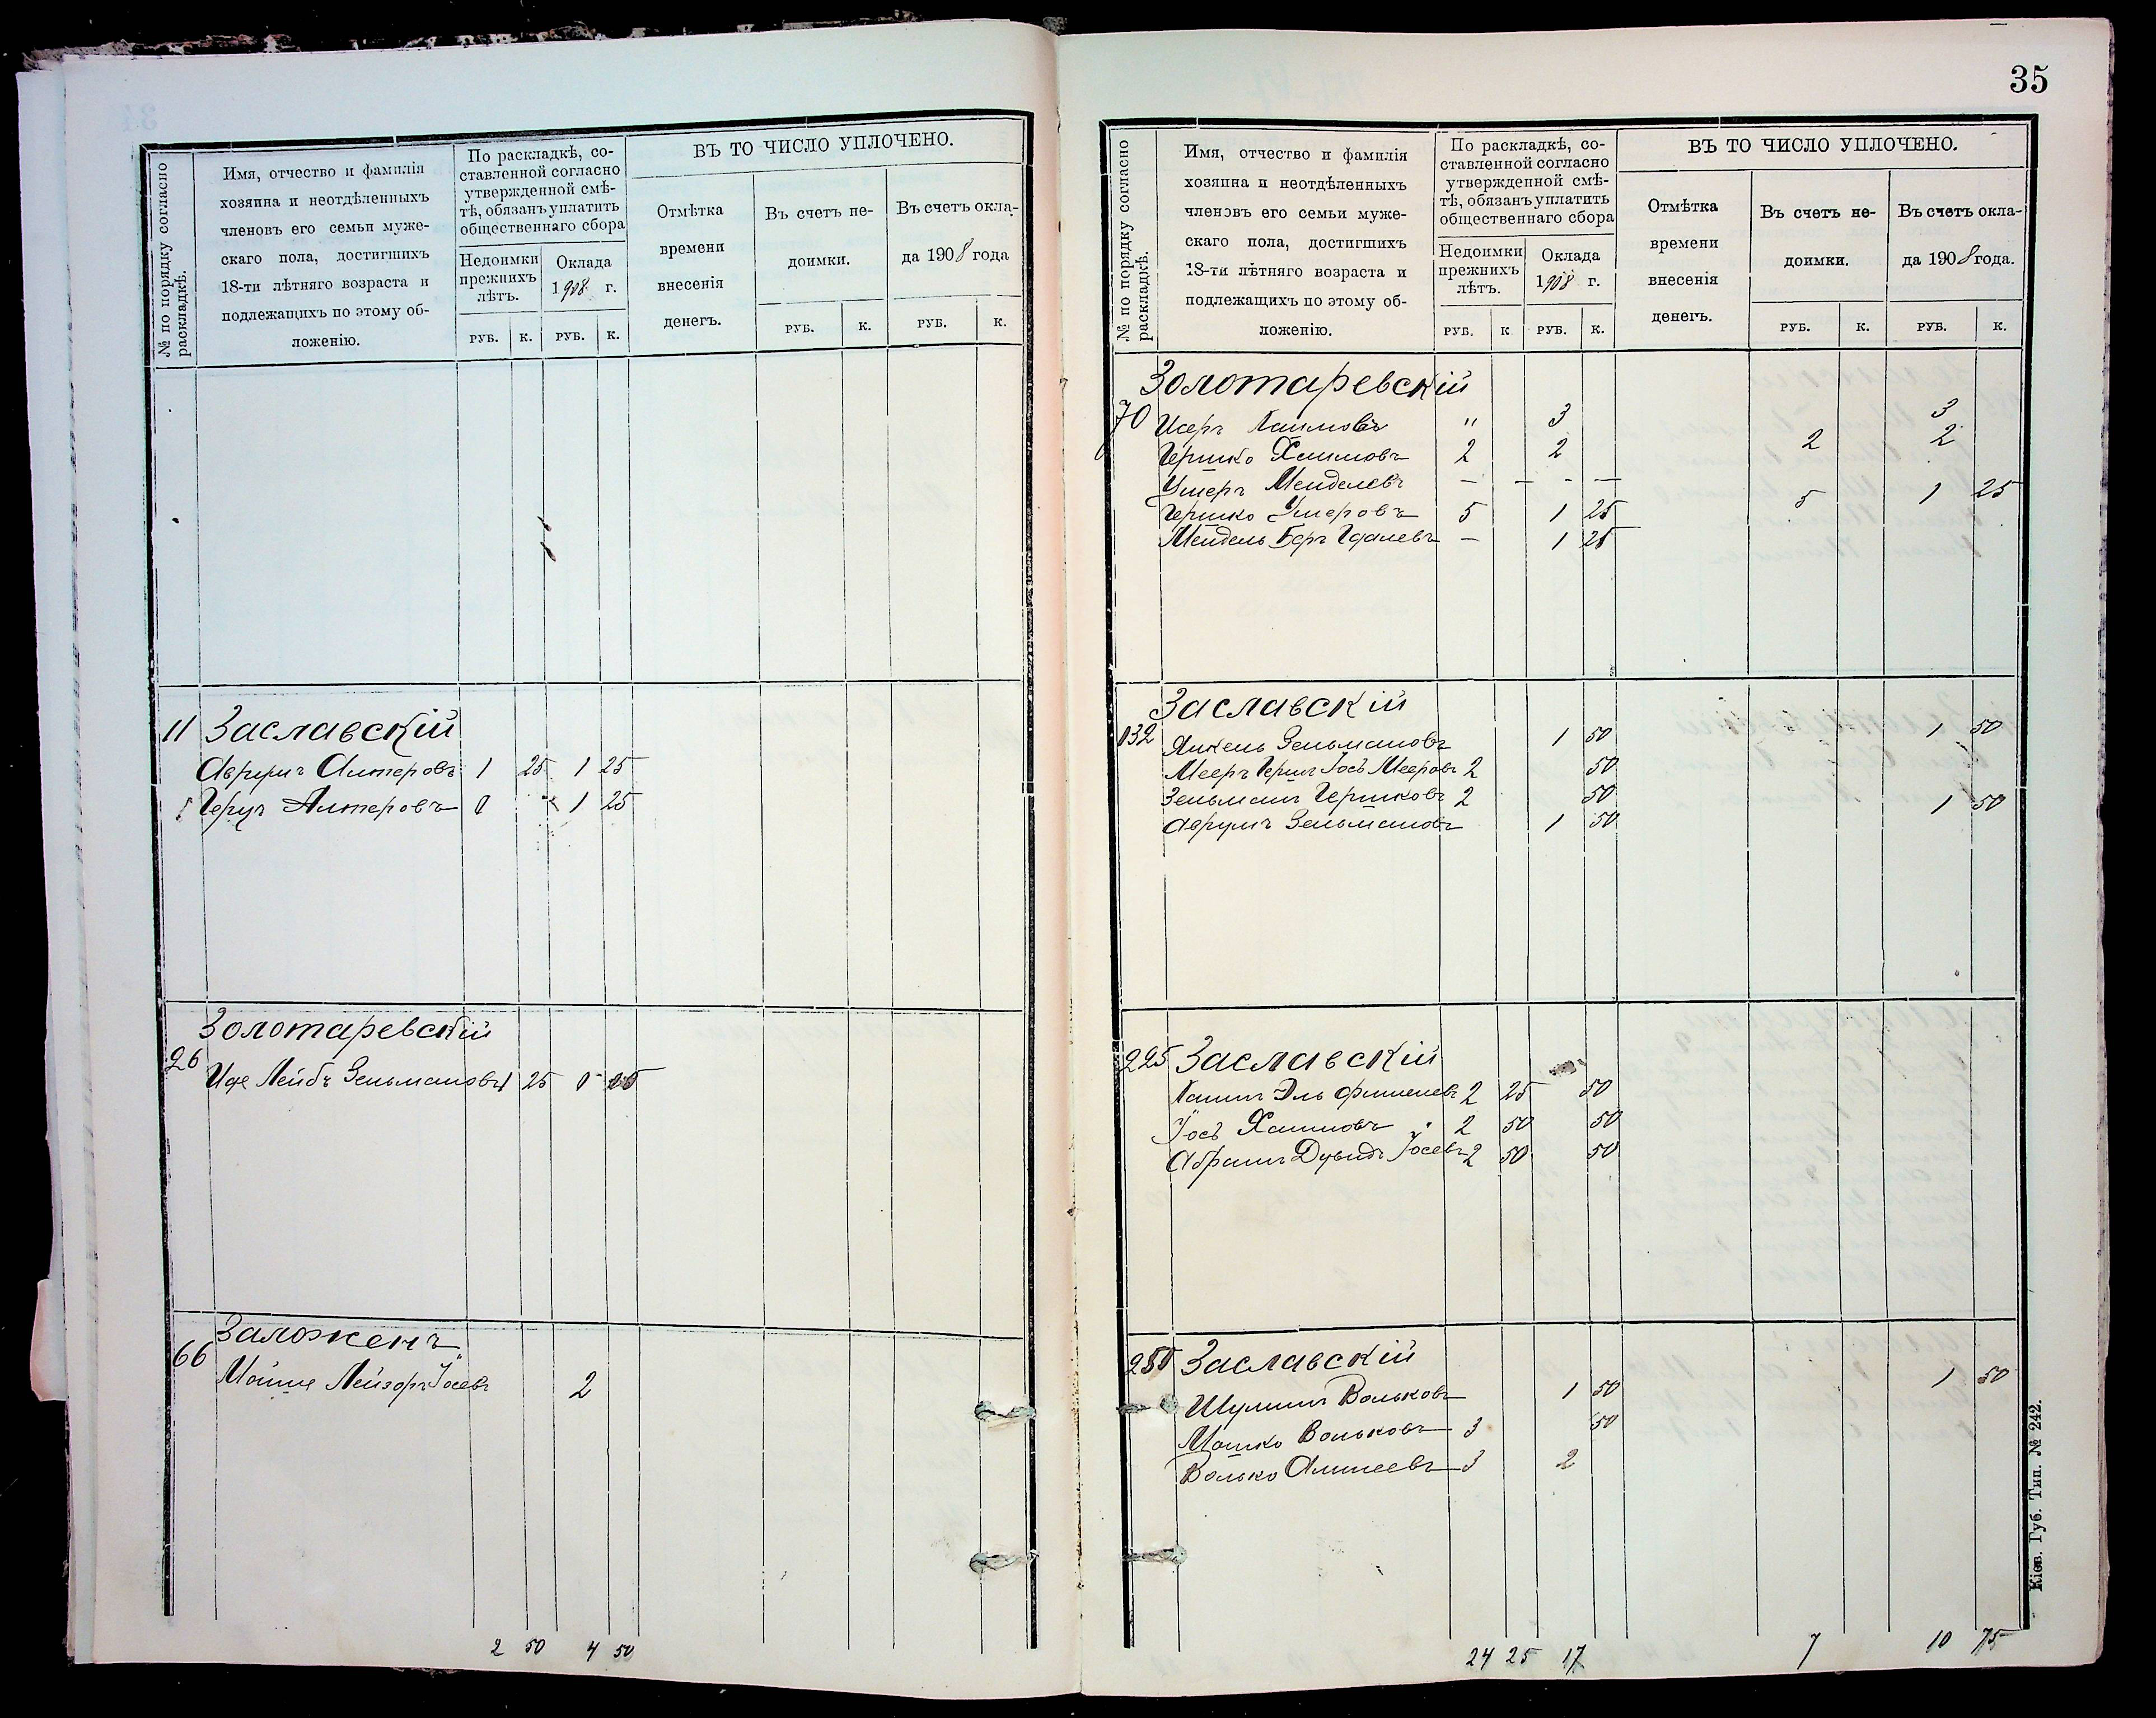 № по порядку согласно раскладкѣ.
Имя, отчество и фамилія
хозяина и неотдѣленныхъ
членовъ его семьи муже-
скаго пола, достигшихъ
18-ти лѣтняго возраста и
подлежащихъ по этому об-
ложенію.
По раскладкѣ, со-
ставленной согласно
утвержденной смѣ-
тѣ, обязанъ уплатить
общественнаго сбора
Недоимки
прежнихъ
лѣтъ.
Оклада
1908 г.
РУБ. К. РУБ. К.
ВЪ ТО ЧИСЛО УПЛОЧЕНО.
Отмѣтка
времени
внесенія
денегъ.
Въ счетъ не-
доимки.
РУБ. К.
Въ счетъ окла-
да 1908 года
РУБ. К.
11 Заславскій
Аврумъ Алтеровъ 1 25 1 25
Герцъ Алтеровъ 1 25
Золотаревскій
26
Ице Лейбъ Зельмановъ 1 25
Заложенъ
66
Мойше Лейзоръ Іосевъ 2
2 50 4 50
35
№ по порядку согласно раскладкѣ.
Имя, отчество и фамилія
хозяина и неотдѣленныхъ
членовъ его семьи муже-
скаго пола, достигшихъ
18-ти лѣтняго возраста и
подлежащихъ по этому об-
ложенію.
По раскладкѣ, со-
ставленной согласно
утвержденной смѣ-
тѣ, обязанъ уплатить
общественнаго сбора
Недоимки
прежнихъ
лѣтъ.
Оклада
1908 г.
РУБ. К РУБ. К.
ВЪ ТО ЧИСЛО УПЛОЧЕНО.
Отмѣтка
времени
внесенія
денегъ.
Въ счетъ не-
доимки.
РУБ. К.
Въ счетъ окла-
да 1908 года.
РУБ. К.
Золотаревскій
70 Исеръ Хаимовъ " 3 3
Гершко Хаимовъ 2 2 2 2
Ушеръ Менделевъ — — - —
Гершко Ушеровъ 5 1 25 5 1 25
Мендель Беръ Гдалевъ — 1 25
Заславскій
132 Янкель Зельмановъ 1 50 1 50
Мееръ Гершъ Іосъ Мееровъ 2 50
Зельманъ Гершковъ 2 50
Аврумъ Зельмановъ 1 50 1 50
225 Заславскій
Хаимъ Эль Фишелевъ 2 25 50
Іосъ Хаимовъ 2 50 50
Абрамъ Дувидъ Іосевъ 2 50 50
250 Заславскій
Шулимъ Вольковъ 1 50 1 50
Мошко Вольковъ 3 50
Волько 3 2
24 25 17 7 10 75
Кіев. Губ. Тип. № 242.